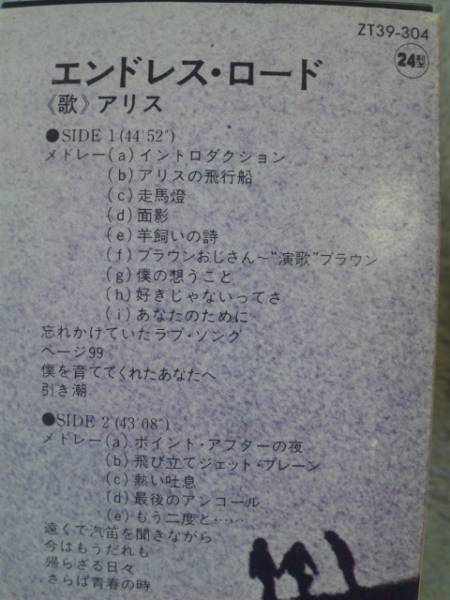 ZT39-304
24型
エンドレス・ロード
《歌》アリス
●SIDE 1(44′52″)
メドレー(a)イントロダクション
(b)アリスの飛行船
(c)走馬燈
(d)面影
(e)羊飼いの詩
(f)ブラウンおじさん〜“演歌”ブラウン
(g)僕の想うこと
(h)好きじゃないってさ
(i)あなたのために
忘れかけていたラブ・ソング
ページ99
僕を育ててくれたあなたへ
引き潮
●SIDE 2(43′08″)
メドレー(a)ポイント・アフターの夜
(b)飛び立てジェット・プレーン
(c)熱い吐息
(d)最後のアンコール
(e)もう二度と……
遠くで汽笛を聞きながら
今はもうだれも
帰らざる日々
さらば青春の時